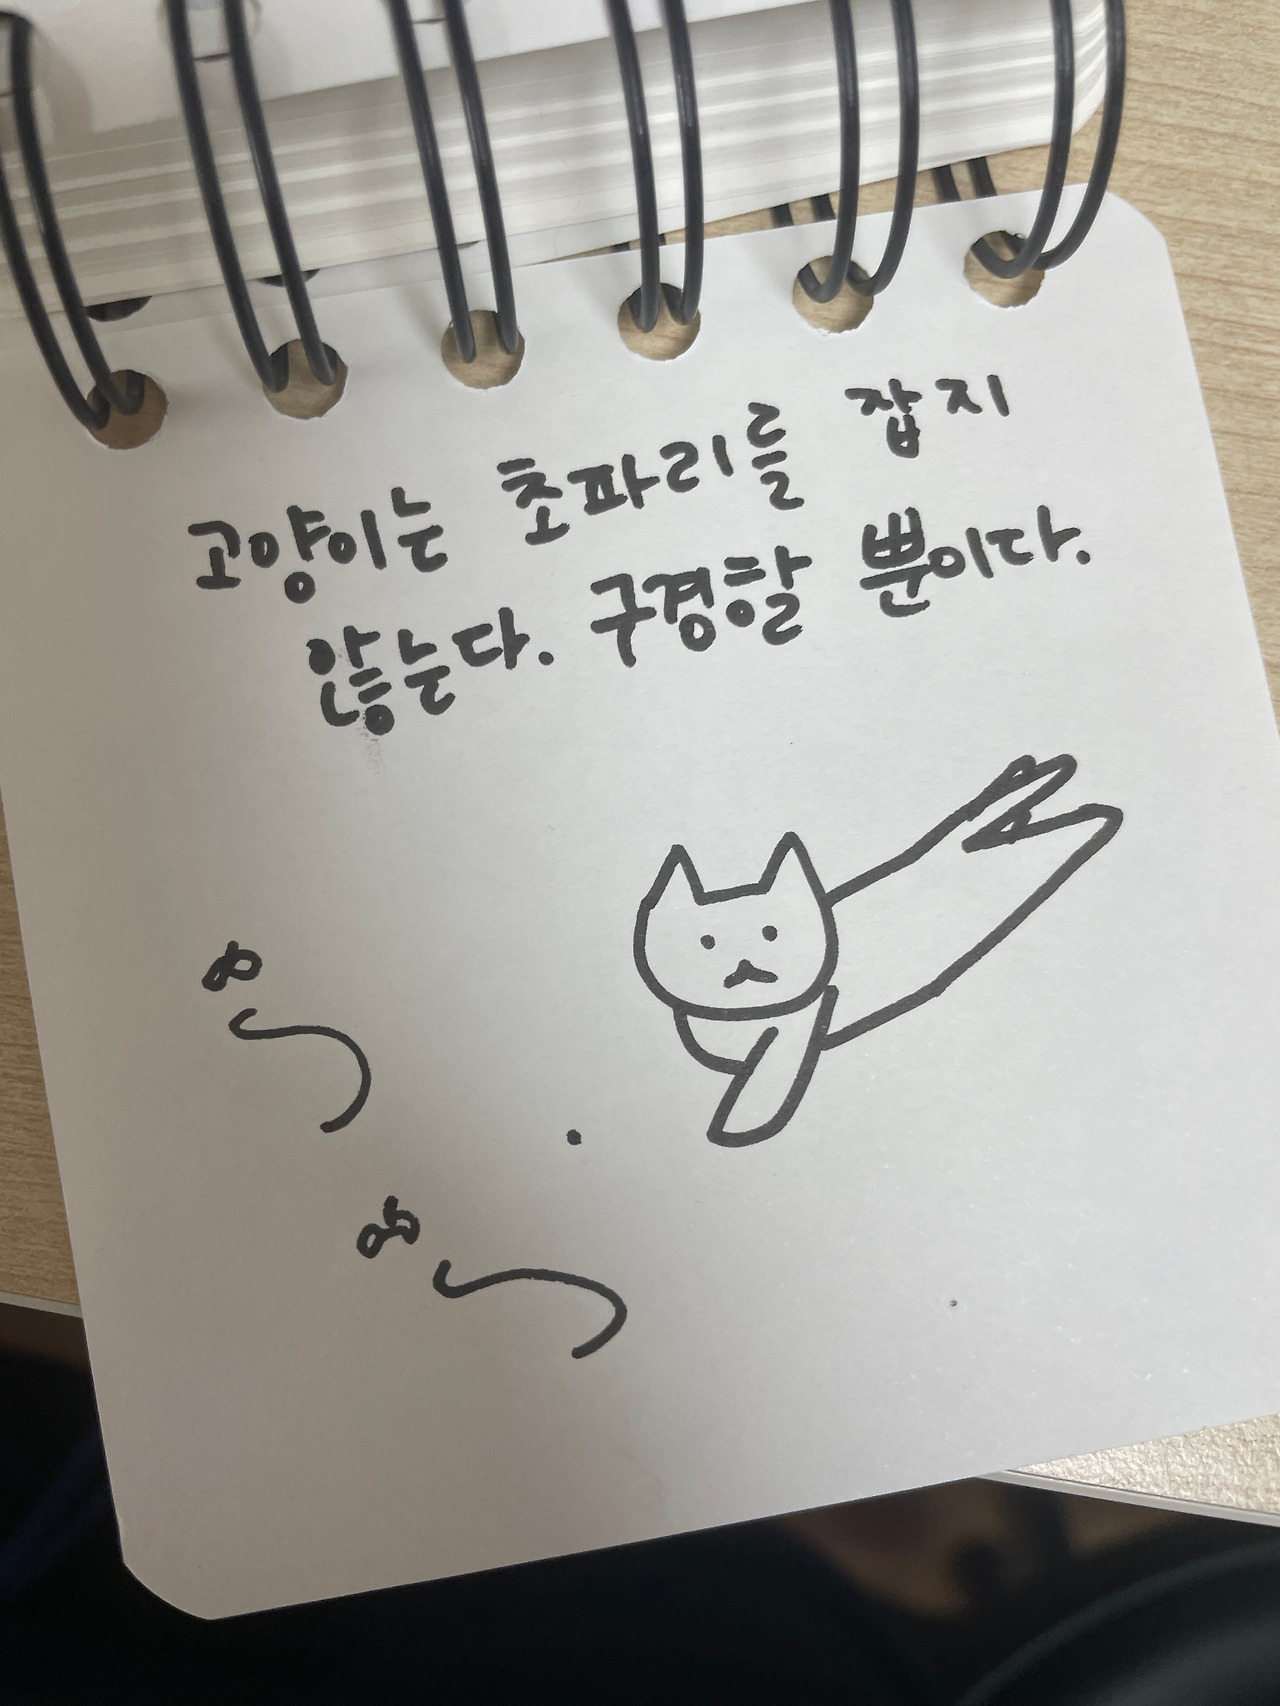 고양이는 초파리를 잡지
않는다. 구경할 뿐이다.